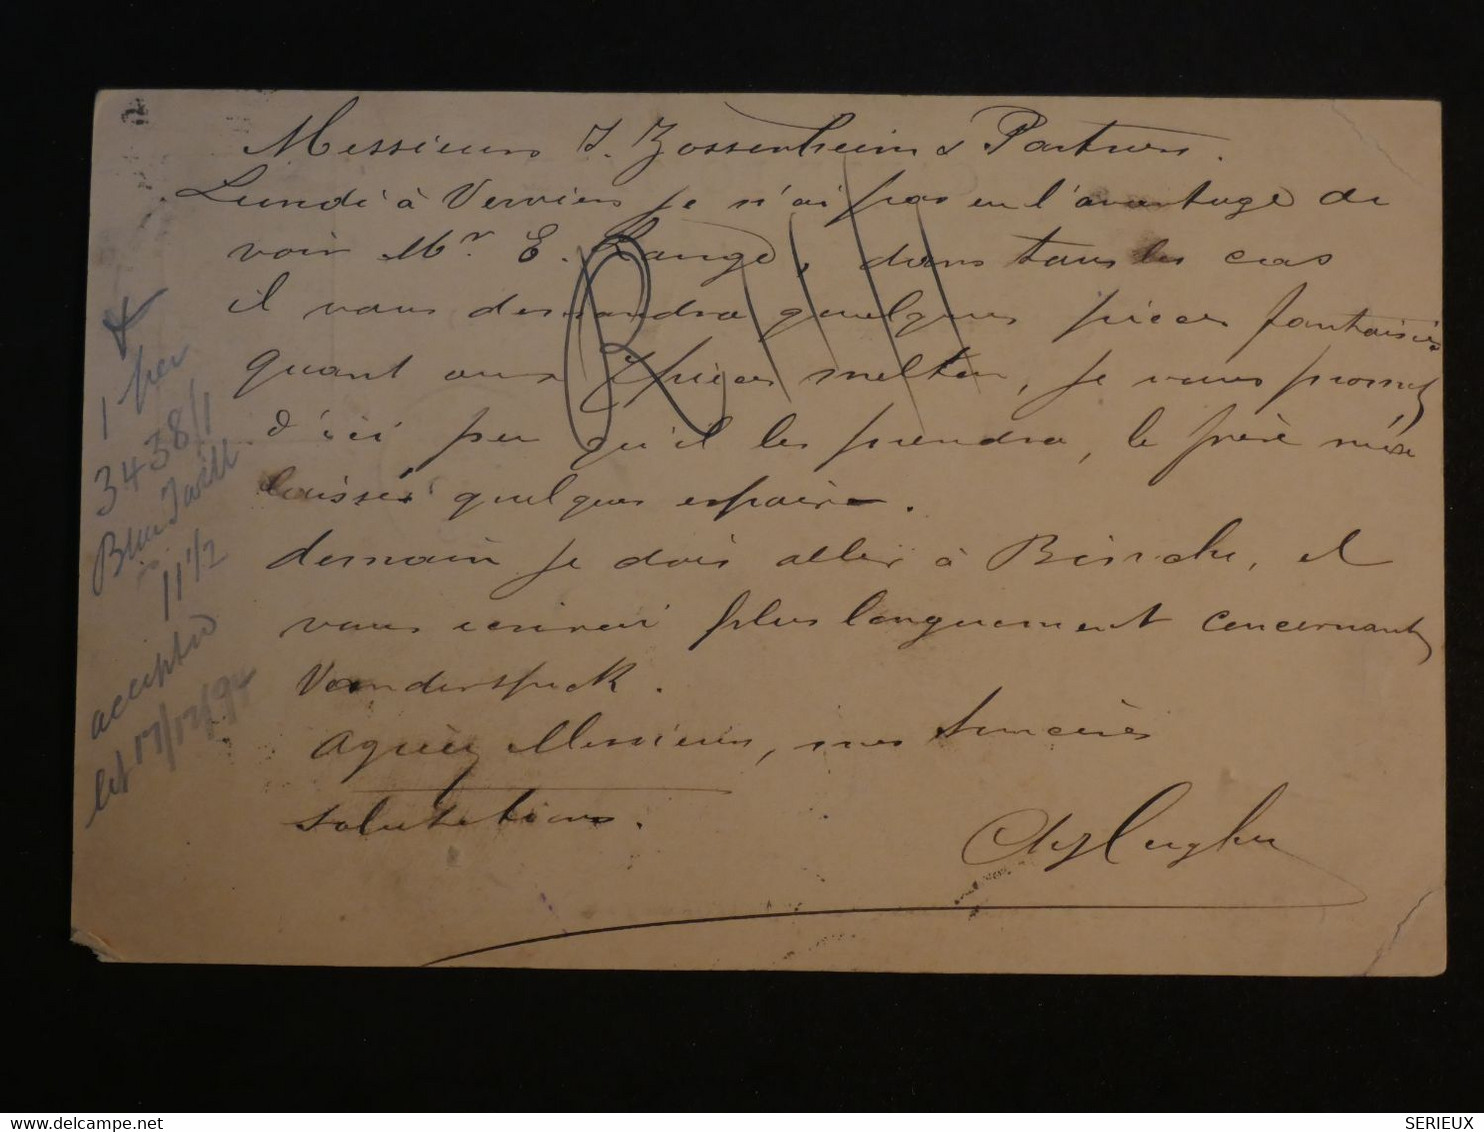 Messieurs J. Zossenheim & Partners.
Lundi à Verviers je n'ai pas eu l'avantage de
voir Mr. E. Lange, dans tous les cas
il vous demandra quelques pièces fantaisies
quant aux pièces melton, je vous promet
d'ici peu qu'il les prendra, le frère m'a
laissés quelques espoir.
demain je dois aller à Binche, et
vous écrirai plus longuement concernant
Vanderspeck.
Agréez Messieurs, mes sincères
salutations.
R
1 pce
3438/1
Blue Twill
11 1/2
accepted
let 17/12/94
www.delcampe.net
SERIEUX